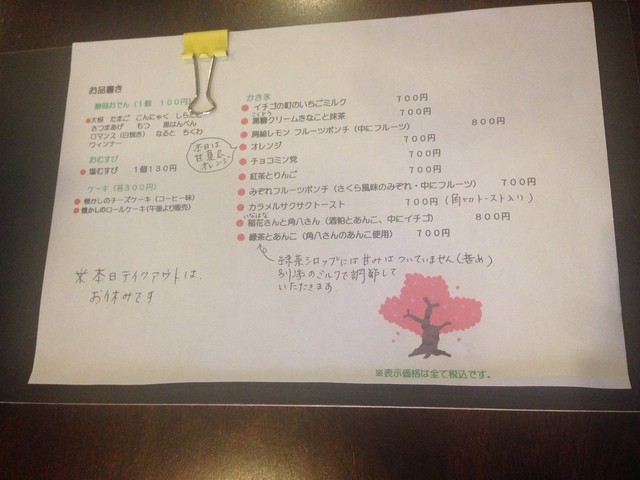 お品書き
静岡おでん（1個 100円）
大根 たまご こんにゃく しらたき
さつまあげ もつ 黒はんぺん
ロマンス（白焼き） なると ちくわ
ウィンナー
おむすび
塩むすび 1個130円
ケーキ（各300円）
懐かしのチーズケーキ（コーヒー味）
懐かしのロールケーキ（午後より販売）
※本日テイクアウトは、
お休みです
かき氷
イチゴの町のいちごミルク 700円
こくとう
黒糖クリームきなこと抹茶 700円
房総レモン フルーツポンチ（中にフルーツ） 800円
オレンジ 700円
本日は
甘夏&
オレンジ
チョコミン党 700円
紅茶とりんご 700円
みぞれフルーツポンチ（さくら風味のみぞれ・中にフルーツ） 700円
カラメルサクサクトースト 700円（角切トースト入り）
いなはな
稲花さんと角八さん（酒粕とあんこ、中にイチゴ） 800円
緑茶とあんこ（角八さんのあんこ使用） 700円
抹茶シロップには甘みはついていません（苦め）
別添のミルクで調節して
いただきます
※表示価格は全て税込です。